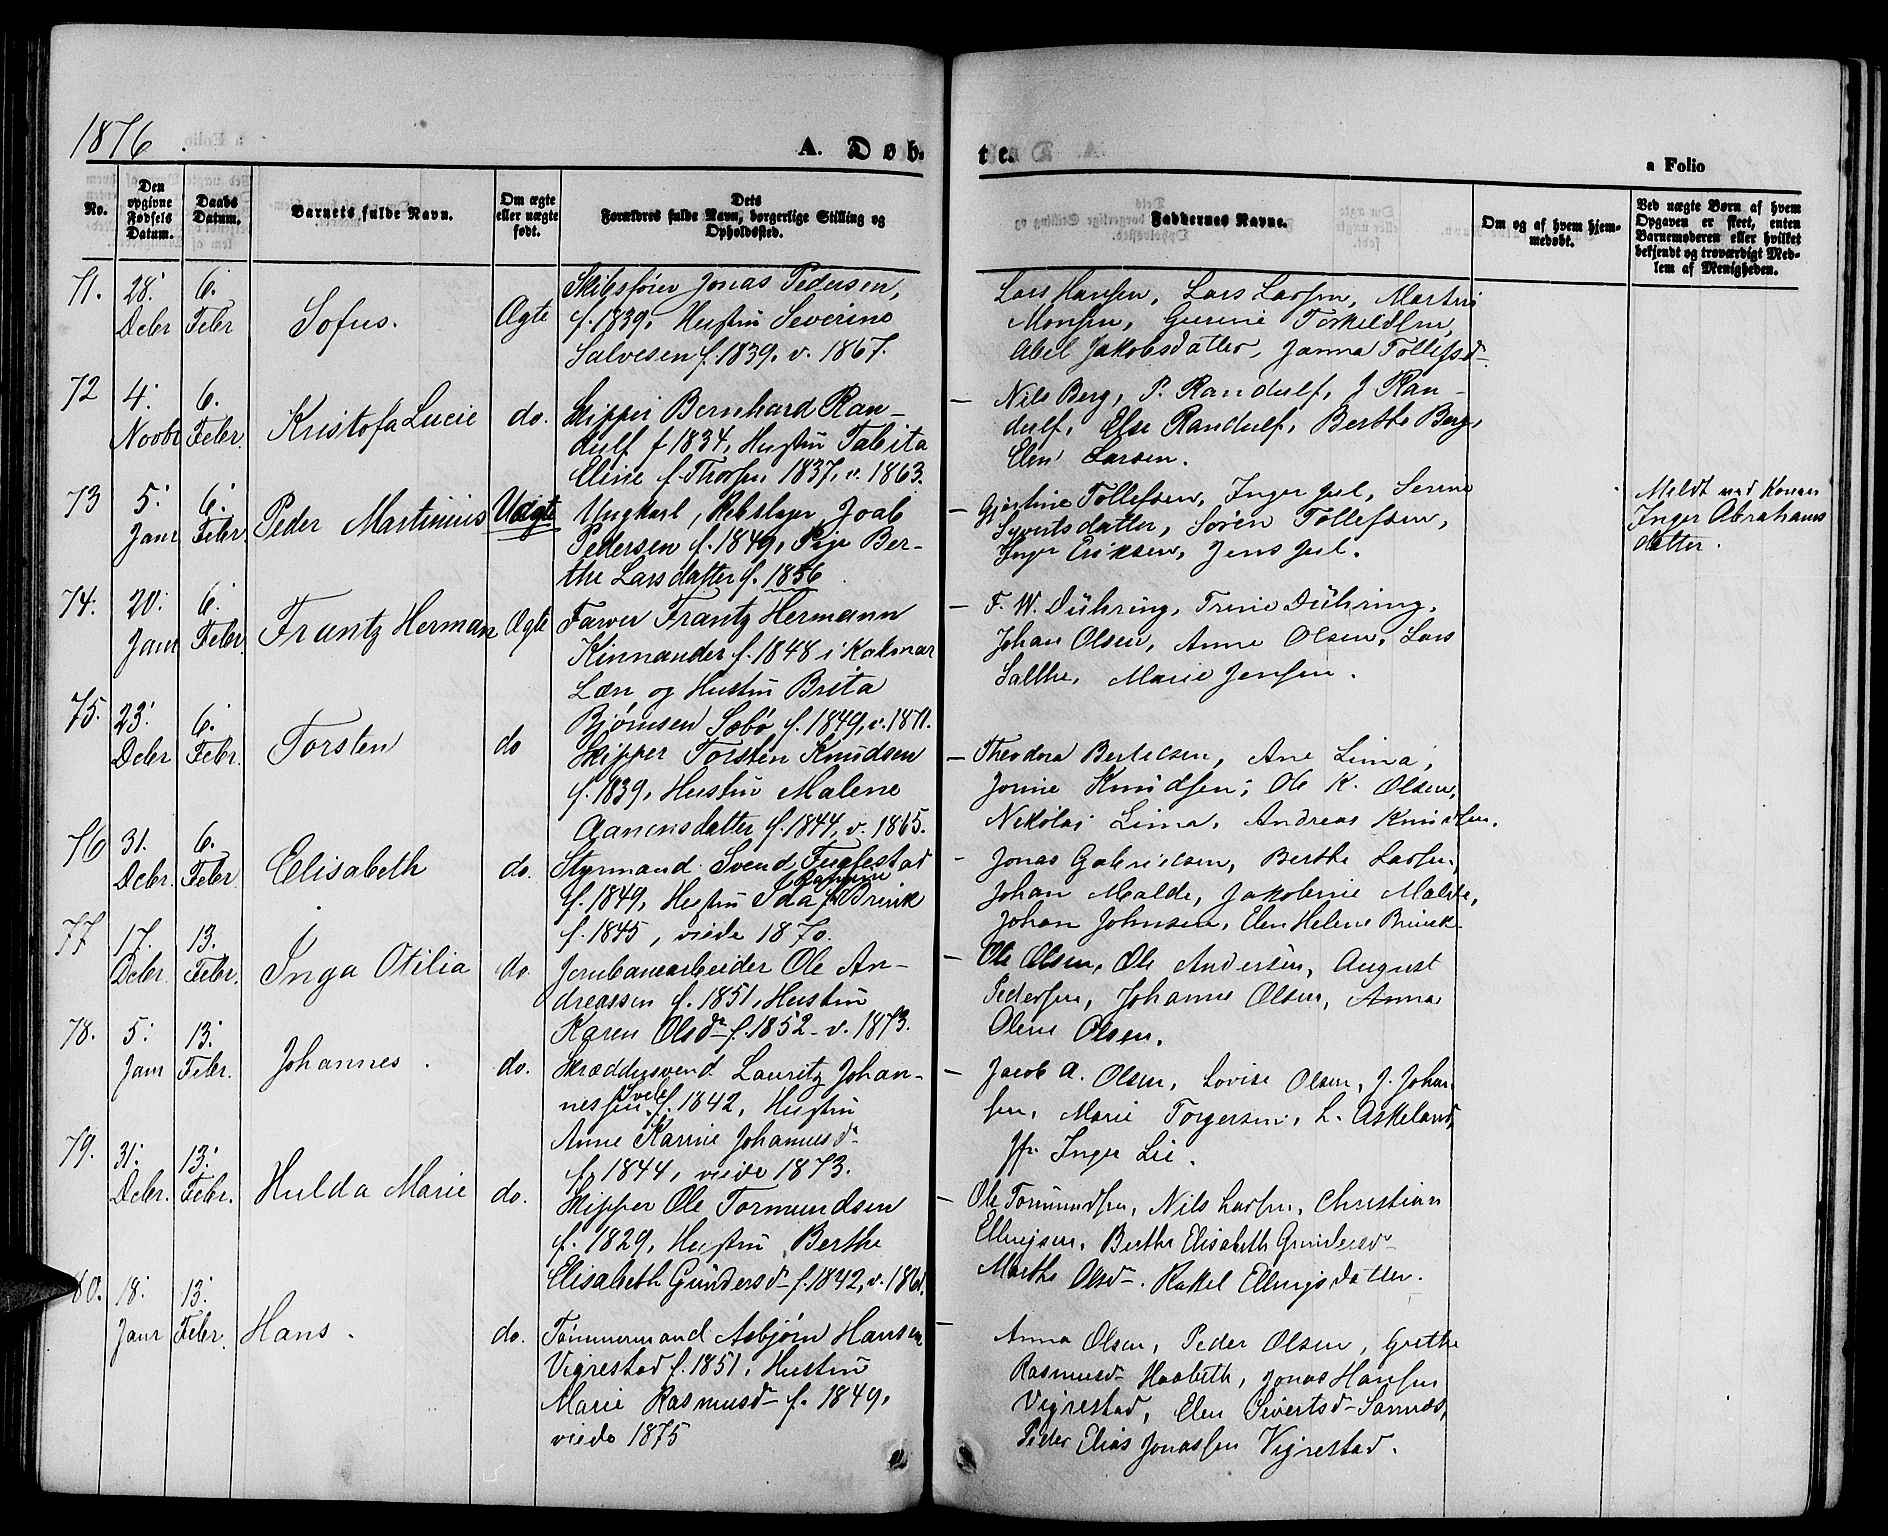 1876
A. Døb-
te.
a Folio
No.
Den opgivne Fødsels Datum.
Daabs Datum.
Barnets fulde Navn.
Om ægte eller uægte født.
Dets Forældres fulde Navn, borgerlige Stilling og Opholdssted.
Faddernes Navne.
Om og af hvem hjemmedøbt.
Ved uægte Børn af hvem Opgaven er skeet, enten Barnemoderen eller hvilket bekjendt og troværdigt Medlem af Menigheden.
71. 28. Decbr 6. Febr Sofus. Ægte
Skibsfører Jonas Pedersen,
f. 1839, Hustru Severine
Salvesen f. 1839. v. 1867.
Lars Hansen, Lars Larsen, Martin
Monsen, Gurine Torkeldsen,
Abel Jakobsdatter, Janna Tollefsd
72 4. Novbr 6. Febr. Kristofa Lucie do.
Skipper Bernhard Ran-
dulf f 1834, Hustru Tabita
Eline f. Thorsen 1837, v. 1863.
Nils Berg, P. Randulf, J Ran-
dulf, Else Randulf, Berthe Berg,
Elen Larsen.
73 5. Janr 6. Febr. Peder Martinius Uægte
Ungkarl, Rebslager Joab
Pedersen f. 1849, Pige Ber-
the Larsdatter f. 1856
Gjertine Tollefsen, Inger Jul, Serine
Syvertsdatter, Søren Tollefsen,
Inger Eriksen, Jens Jul.
Meldt ved Konen
Inger Abrahams
datter.
74. 20. Janr 6. Febr. Frantz Herman Ægte
Farver Frantz Hermann
Kinnander f. 1848 i Kalmar
Læn, og Hustru Brita
Bjørnsen Sæbø f. 1849, v. 1871.
F. W. Dühring, Trine Dühring,
Johan Olsen, Anne Olsen, Lars
Salthe, Marie Jensen.
75. 23. Decbr 6. Febr. Torsten do
Skipper Torsten Knudsen
f. 1839, Hustru Malene
Aanensdatter f. 1844, v. 1865.
Theodora Bertelsen, Ane Lima,
Jorine Knudsen, Ole K. Olsen,
Nikolai Lima, Andreas Knudsen.
76 31. Decbr. 6. Febr Elisabeth do.
Styrmand Svend Fuglestad
f. 1849, Hustru Ida f. Brink
f. 1845, viede 1870.
Jonas Gabrielsen, Berthe Larsen,
Johan Malde, Jakobine Malde,
Johan Johnsen, Elen Helene Brinck.
77 17. Decbr. 13. Febr. Inga Otilia do.
Jernbanearbeider Ole An-
dreassen f. 1851, Hustru
Karen Olsdr f. 1852 - v. 1873.
Ole Olsen, Ole Andersen, August
Pedersen, Johanne Olsen, Anna
Olene Olsen.
78. 5. Janr 13. Febr. Johannes. do.
Skræddersvend Lauritz Johan-
nessen f. 1842, Hustru
Anne Karine Johannesdr
f. 1844, viede 1873.
Jacob A. Olsen, Lovise Olsen, J. Johan
sen, Marie Torgersen, L. Askeland,
Jfr Inger Lie.
79. 31. Decbr. 13. Febr. Hulda Marie do.
Skipper Ole Tormundsen
f. 1829, Hustru Berthe
Elisabeth Gundersdr f. 1842, v. 186
Ole Tormundsen, Nils Larsen, Christian
Ellingsen, Berthe Elisabeth Gundersdr
Marthe Olsdr. Rakel Ellingsdatter.
80. 18. Janr 13. Febr. Hans. do.
Tømmermand Asbjørn Hansen
Vigrestad f. 1851, Hustru
Marie Rasmusdr f. 1849,
viede 1875
Anna Olsen, Peder Olsen, Grethe
Rasmusdr Haabeth, Jonas Hansen
Vigrestad, Elen Sivertsdr Sannes,
Peder Elias Jonassen Vigrestad.